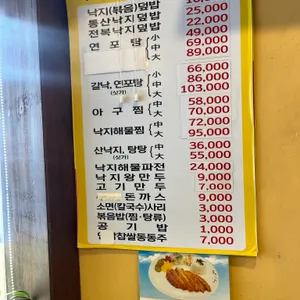 낙지(볶음)덮밥 25,000
통산낙지덮밥 22,000
전복낙지덮밥 49,000
연포탕 小 中 大 69,000
89,000
66,000
갈낙, 연포탕 (싯가) 小 中 大 86,000
103,000
58,000
아구찜 小 中 大 70,000
72,000
낙지해물찜 中 大 95,000
산낙지, 탕탕 (싯가) 中 大 36,000
55,000
낙지해물파전 24,000
낙지왕만두 9,000
고기만두 7,000
돈까스 9,000
소면(칼국수)사리 3,000
볶음밥(찜·탕류) 3,000
공기밥 1,000
찹쌀동동주 7,000